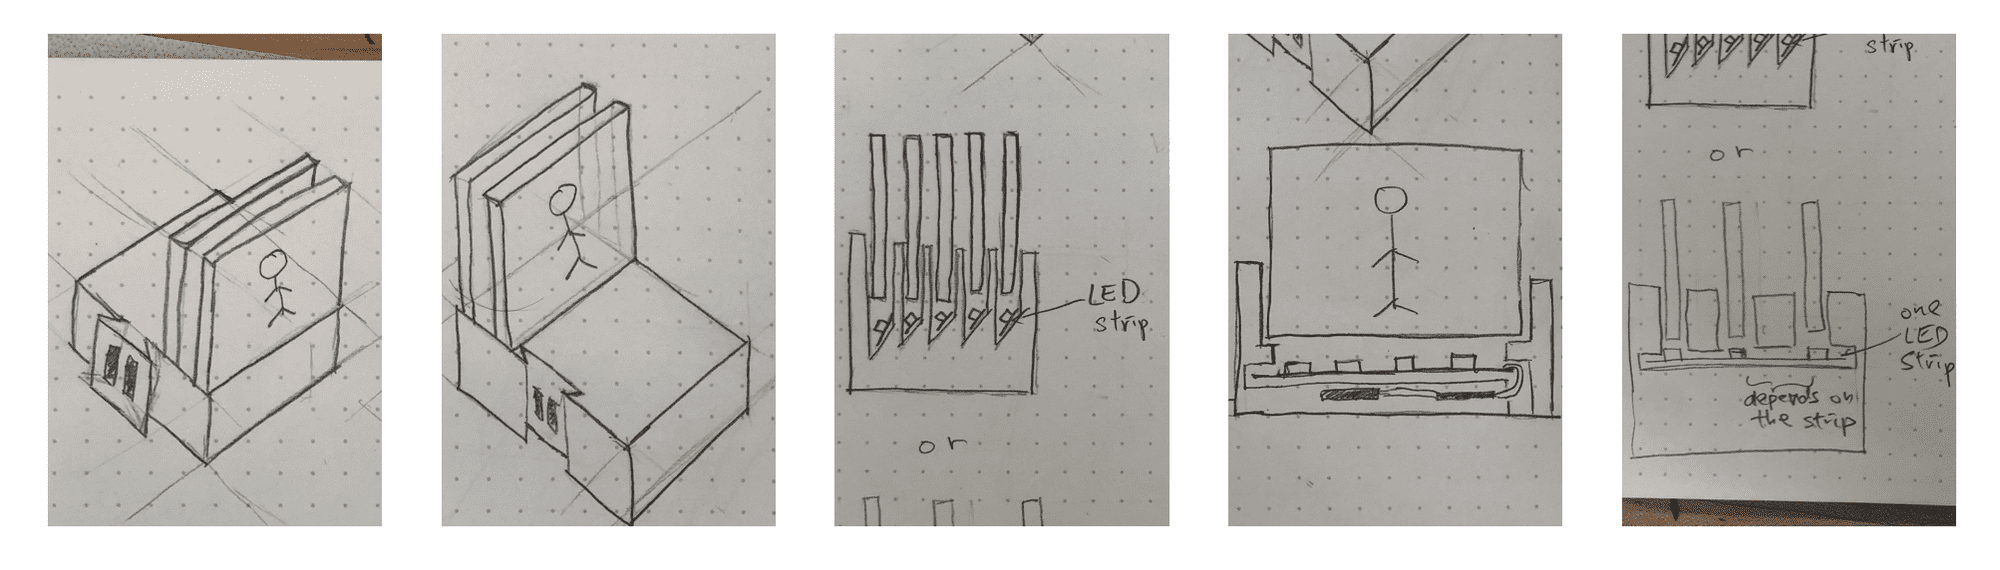 LED
strip
or
strip
or
one
LED
strip
depends on
the strip